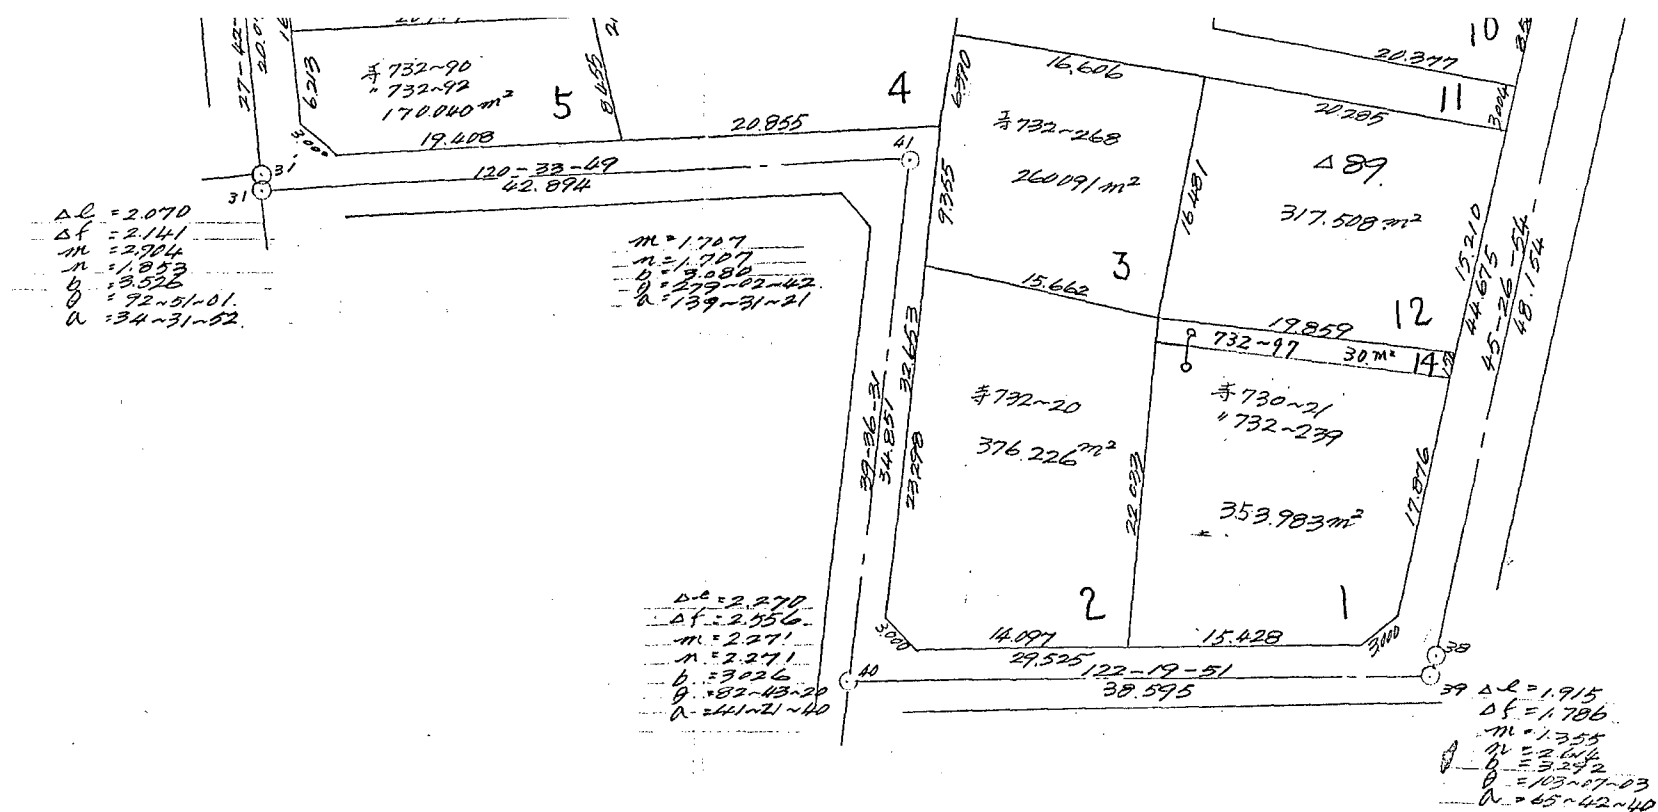 27-42-
20.0
6.213
寺732~90
〃732~92
170.040m²
5
8.455
3.000
19.408
20.855
4
31'
31
120-33-49
42.894
41
Δl=2.070
Δf=2.141
m=2.904
n=1.853
b=3.526
θ=92~51~01.
a=34~31~52
m=1.707
n=1.707
b=3.080
θ=279~02~42.
a=139~31~21
6.390
16.606
寺732~268
260091m²
9.355
16.481
3
15.662
20.377
10
11
3.004
20.285
Δ89.
317.508m²
15.210
44.675
45-26-54
48.154
19.859
12
732~97
30.m²
14
39-36-31
34.851
32.653
23.298
寺732~20
376.226m²
22.033
寺730~21
〃732~239
353.983m²
17.876
2
1
3.000
14.097
15.428
3.000
29.525
122-19-51
38.595
40
38
39
Δl=2.270
Δf=2.556
m=2.271
n=2.271
b=3026
θ=82~43~20
a=41~21~40
Δl=1.915
Δf=1.786
m=1.355
b=3.292
θ=103~07~03
a=65~42~40